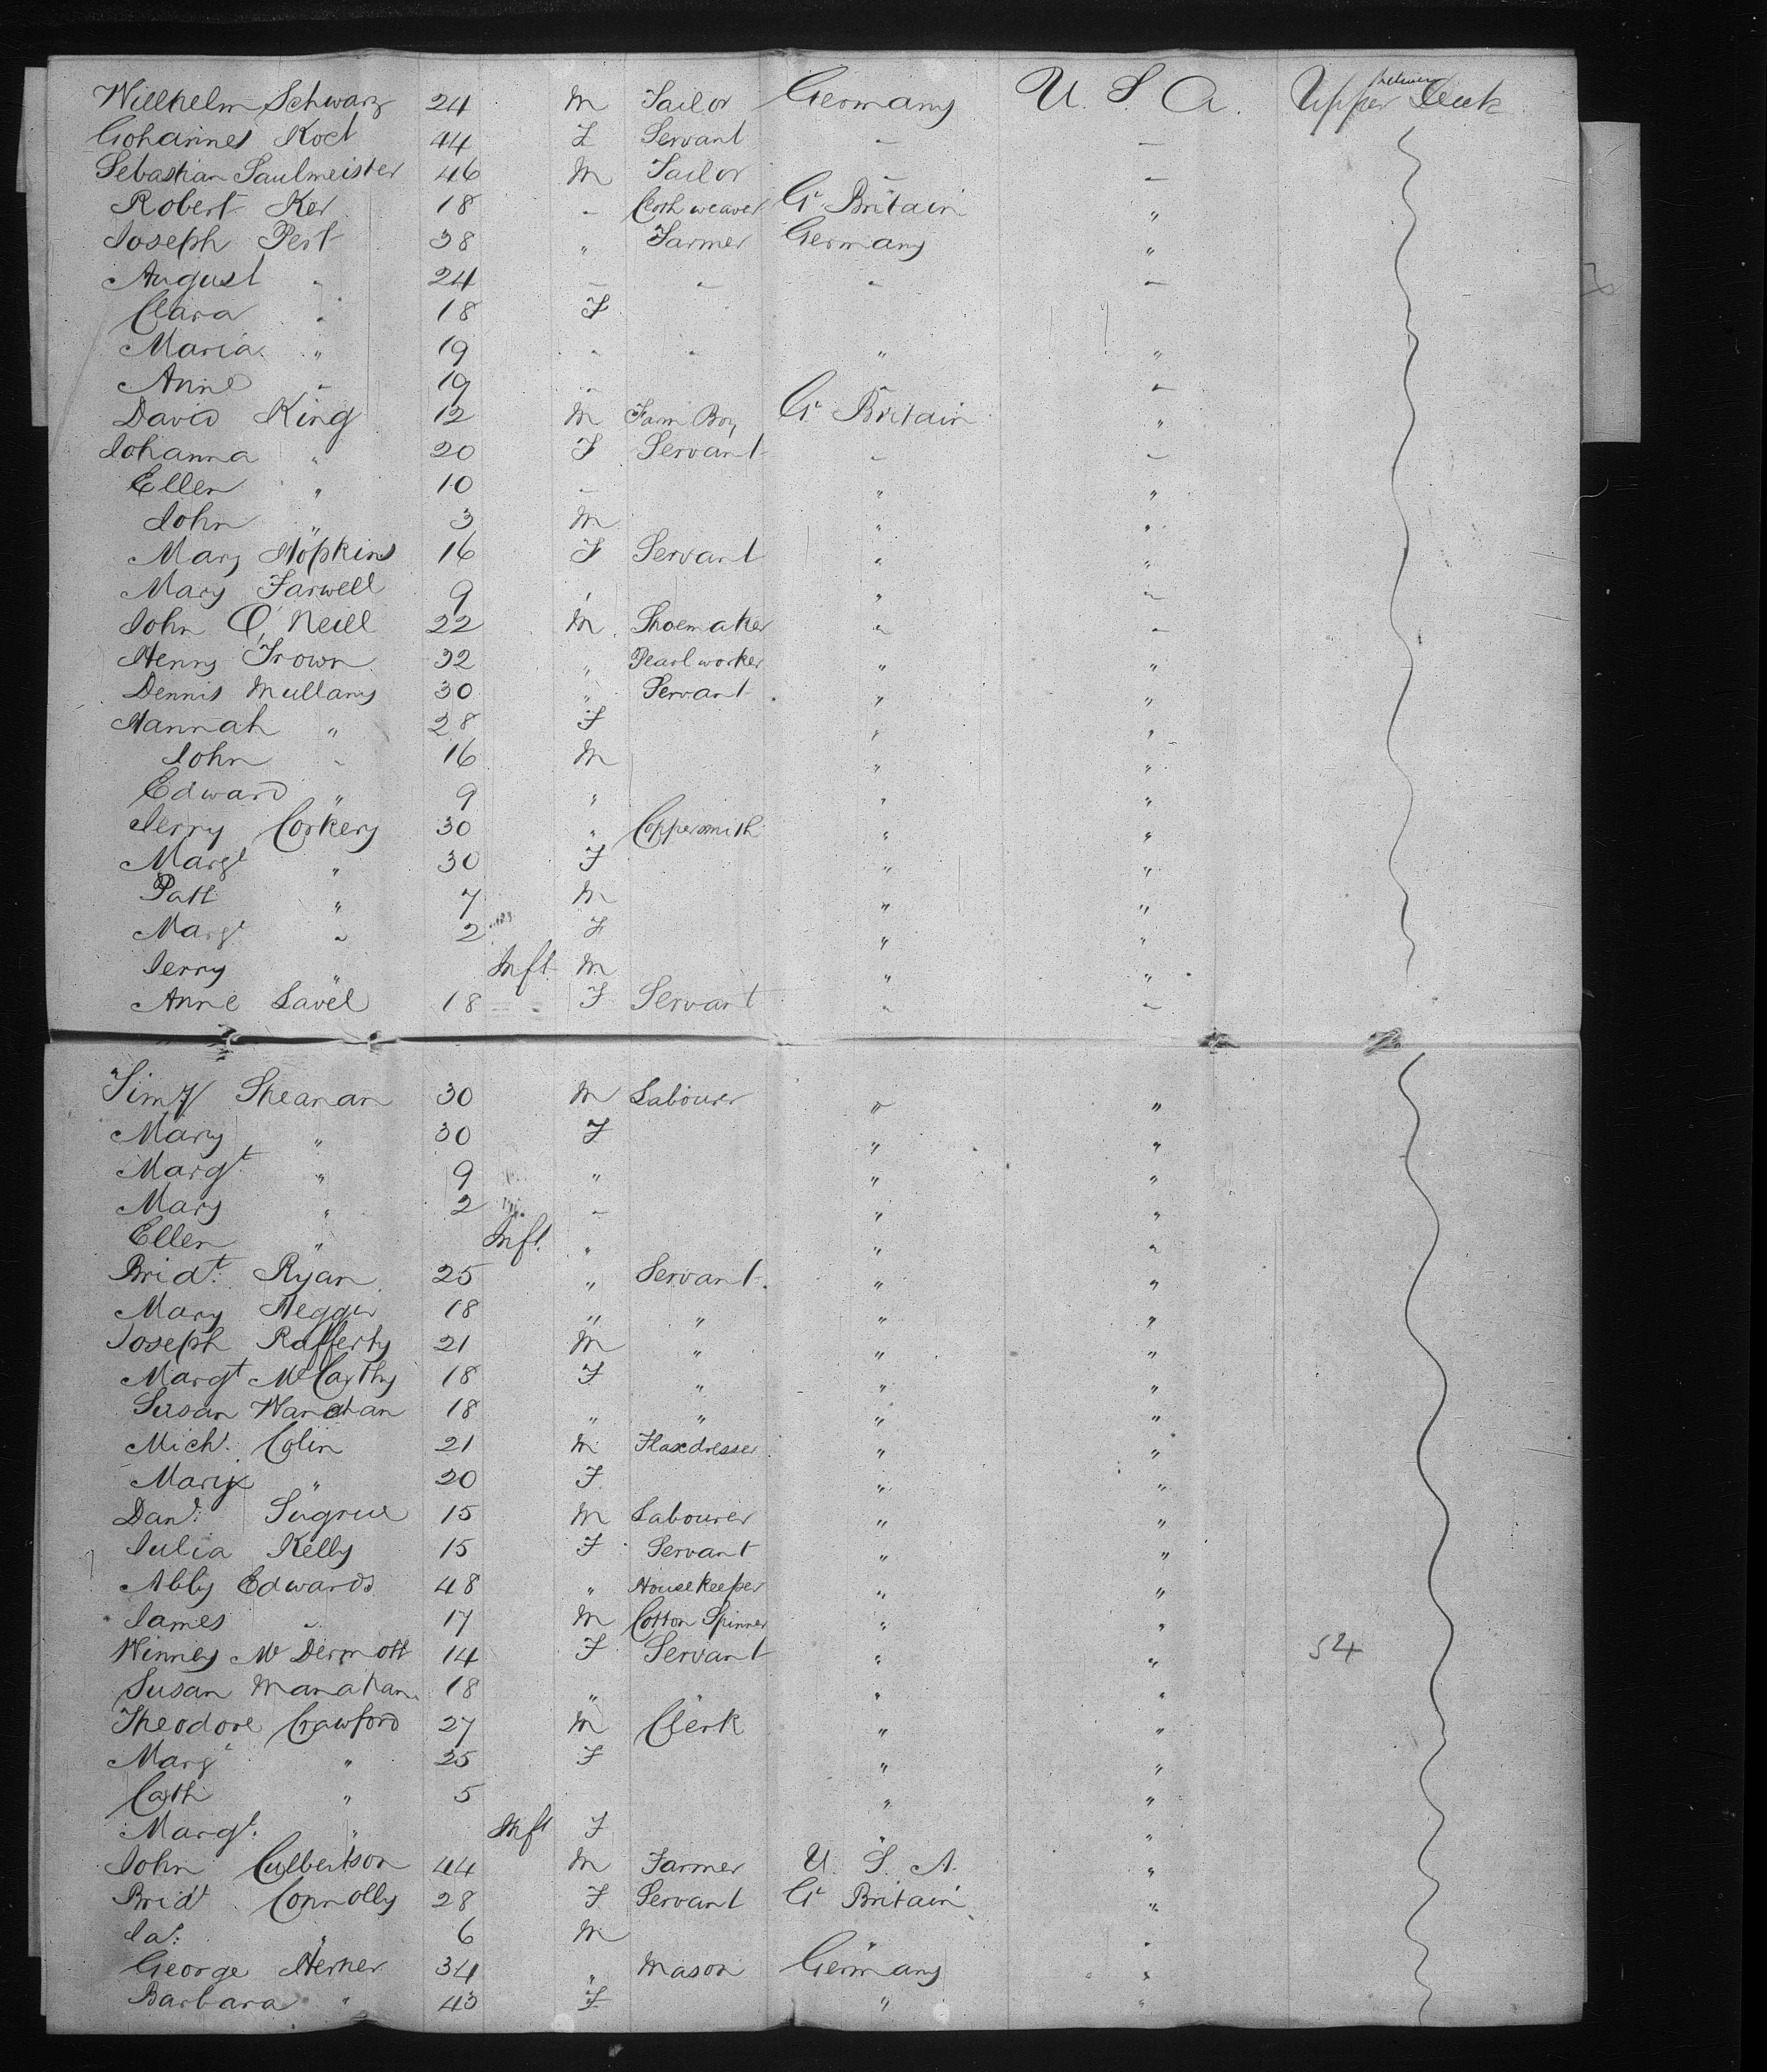 Willhelm Schwarz 24 M Tailor Germany U. S. A. Upper Deck
Gohannes Koct 44 F Servant - -
Sebastian Saulmeister 46 M Tailor - -
Robert Ker 18 - Cloth weaver Gt Britain "
Joseph Pert 38 " Farmer Germany "
August " 24 - - - -
Clara " 18 F
Maria " 19 - - " "
Anne - 19 - -
David King 12 M Farm Boy Gt Britain "
Johanna " 20 F Servant - -
Ellen " 10 - " "
John " 3 M " "
Mary Hopkins 16 F Servant " "
Mary Farwell 9 " " -
John O'Neill 22 M Shoemaker - -
Henry Trown 32 " Pearl worker " "
Dennis Mullany 30 " Servant " "
Hannah " 28 F " "
John - 16 M " "
Edward " 9 " " "
Jerry Corkery 30 " Coppersmith " "
Margt " 30 F " "
Patt " 7 M " "
Margt " 2 F " "
Jerry " Inft M " "
Anne Lavel 18 F Servant " -
Timy Sheanan 30 M Labourer " "
Mary " 30 F " "
Margt " 9 " " "
Mary " 2 - " "
Ellen " Inft. " " "
Bridt: Ryan 25 " Servant " "
Mary Heggu 18 " " " "
Joseph Rafferty 21 M " " "
Margt McCarthy 18 F " " "
Susan Wanahan 18 " " " "
Mich. Colin 21 M Flaxdresser " "
Mary " 20 F " "
Danl: Sugrue 15 M Labourer " "
Julia Kelly 15 F Servant " "
Abby Edwards 48 " Housekeeper " "
James " 17 M Cotton Spinner " "
Winney McDermott 14 F Servant " " 54
Susan Manahan 18 " " " "
Theodore Crawford 27 M Clerk " "
Margt " 25 F " "
Cath " 5 " "
Margt: " Inft F " "
John Culbertson 44 M Farmer U. S. A. "
Bridt Connolly 28 F Servant Gt Britain "
Jas: " 6 M " "
George Herner 34 " Mason Germany "
Barbara " 43 F " "